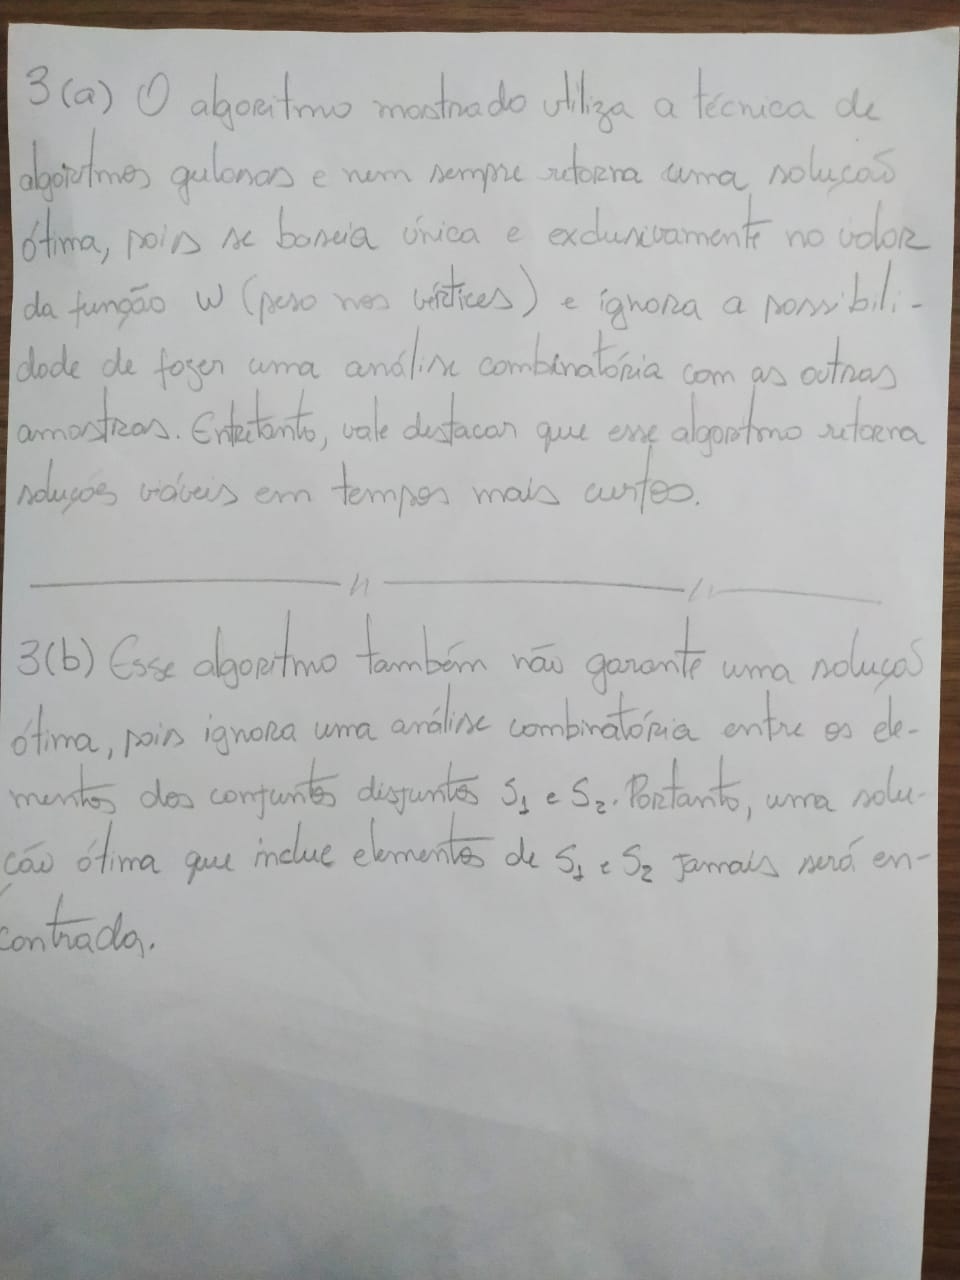 3(a) O algoritmo mostrado utiliza a técnica de
algoritmos gulosos e nem sempre retorna uma solução
ótima, pois se baseia única e exclusivamente no valor
da função W (peso nos vértices) e ignora a possibili-
dade de fazer uma análise combinatória com as outras
amostras. Entretanto, vale destacar que esse algoritmo retorna
soluções viáveis em tempos mais curtos.
3(b) Esse algoritmo também não garante uma solução
ótima, pois ignora uma análise combinatória entre os ele-
mentos dos conjuntos disjuntos S1 e S2. Portanto, uma solu-
ção ótima que inclue elementos de S1 e S2 jamais será en-
contrada.